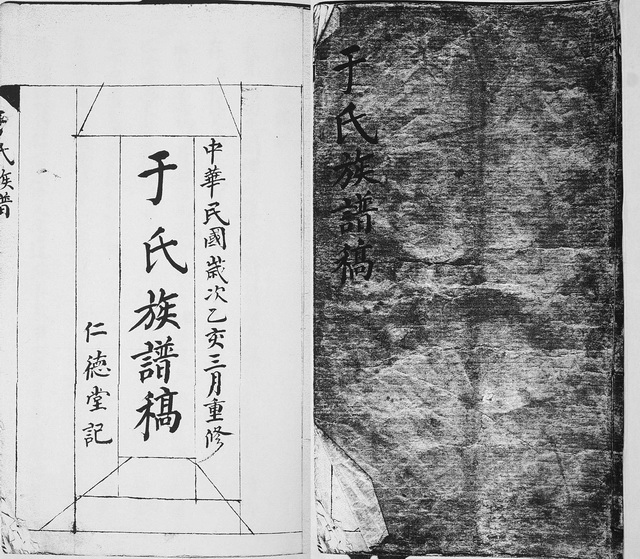 于氏族譜稿
中華民國歲次乙亥三月重修
于氏族譜稿
仁德堂記
于氏族譜